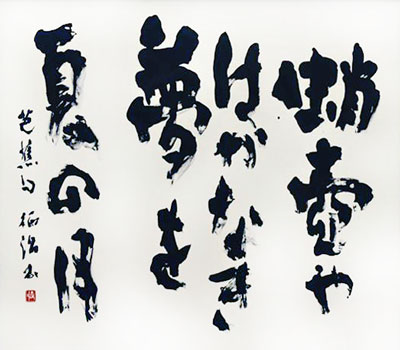 蛸壺や
はかなき
夢を
夏の月
芭蕉句